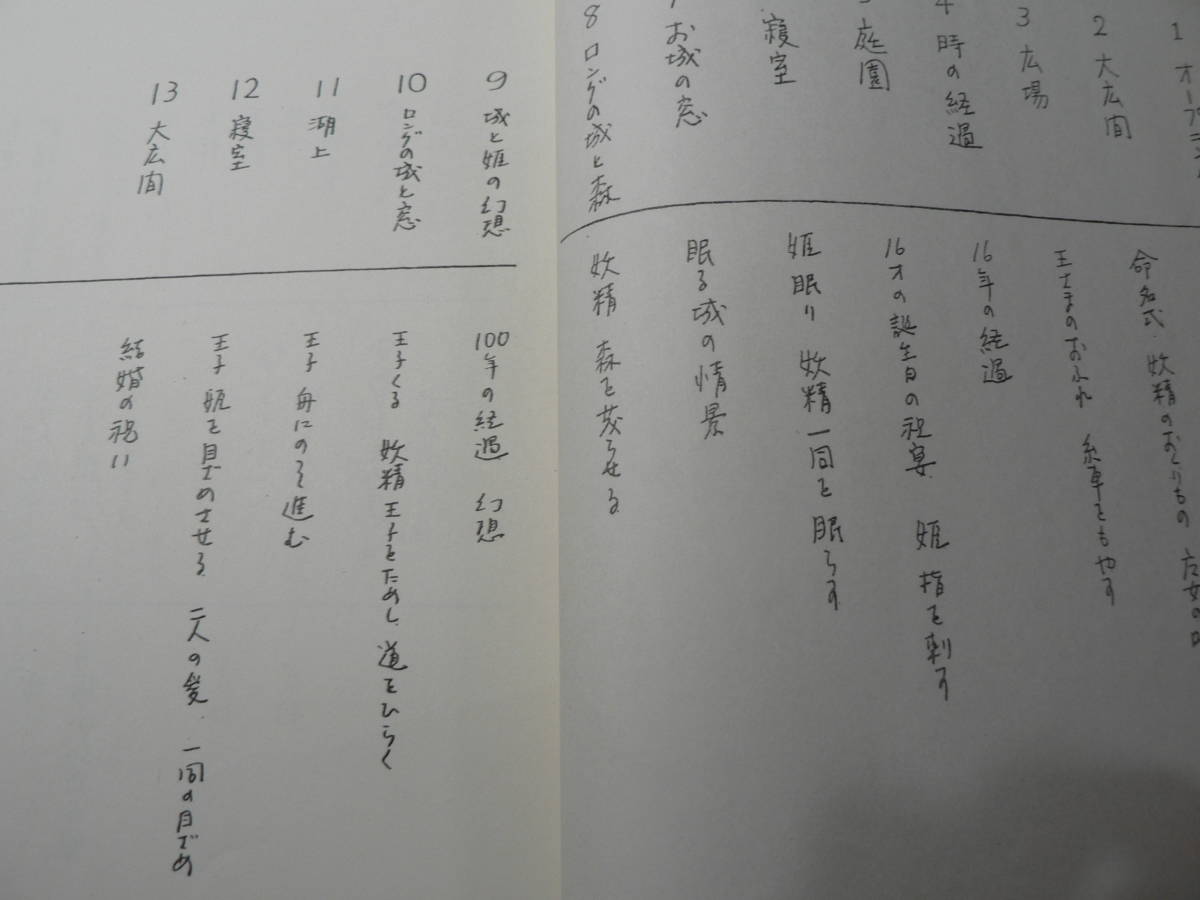 1 オープニング
2 大広間
3 広場
4 時の経過
5 庭園
寝室
7 お城の窓
8 ロングの城と森
命名式 妖精のおくりもの
王さまのおふれ 糸車をもやす
16年の経過
16才の誕生日の祝宴 姫 指を刺す
姫眠り 妖精一同を眠らす
眠る城の情景
妖精 森を茂らせる
9 城と姫の幻想
10 ロングの城と窓
11 湖上
12 寝室
13 大広間
100年の経過 幻想
王子くる 妖精王子をためし、道をひらく
王子 舟にのって進む
王子 姫を目ざめさせる、二人の愛、一同の目ざめ
結婚の祝い